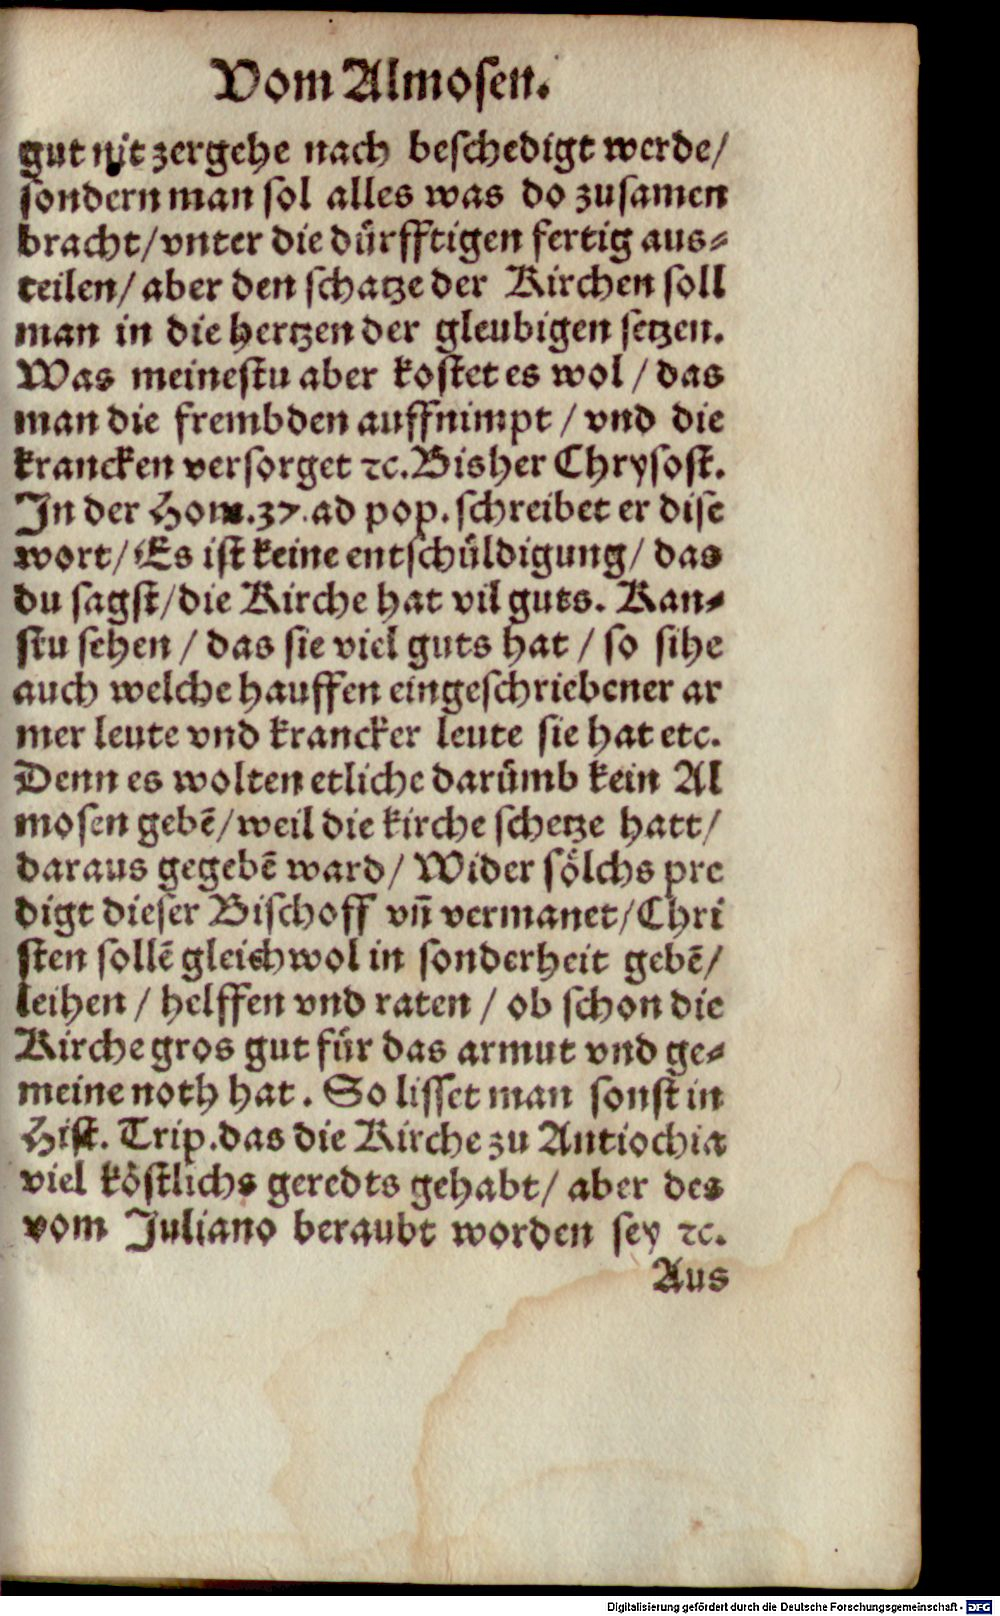 Vom Almosen.
gut nit zergehe nach beschedigt werde/
sondern man sol alles was do zusamen
bracht/vnter die dürfftigen fertig aus-
teilen/ aber den schatze der Kirchen soll
man in die hertzen der gleubigen setzen.
Was meinestu aber kostet es wol / das
man die frembden auffnimpt / vnd die
krancken versorget ꝛc. Bisher Chrysost.
In der Hom.37.ad pop. schreibet er dise
wort/ Es ist keine entschüldigung/ das
du sagst/die Kirche hat vil guts. Kan-
stu sehen / das sie viel guts hat / so sihe
auch welche hauffen eingeschriebener ar
mer leute vnd krancker leute sie hat etc.
Denn es wolten etliche darümb kein Al
mosen gebē/weil die kirche schetze hatt/
daraus gegebē ward/ Wider sölchs pre
digt dieser Bischoff vn̄ vermanet/Chri
sten sollē gleichwol in sonderheit gebē/
leihen / helffen vnd raten / ob schon die
Kirche gros gut für das armut vnd ge-
meine noth hat. So lisset man sonst in
Hist. Trip.das die Kirche zu Antiochia
viel köstlichs geredts gehabt/ aber des
vom Juliano beraubt worden sey ꝛc.
Aus
Digitalisierung gefördert durch die Deutsche Forschungsgemeinschaft - DFG